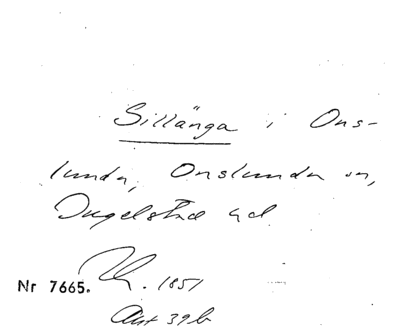 Sillänga i Ons-
lunda, Onslunda sn,
Ingelstad hd.
Nr 7665. 1851
Akt 39 b